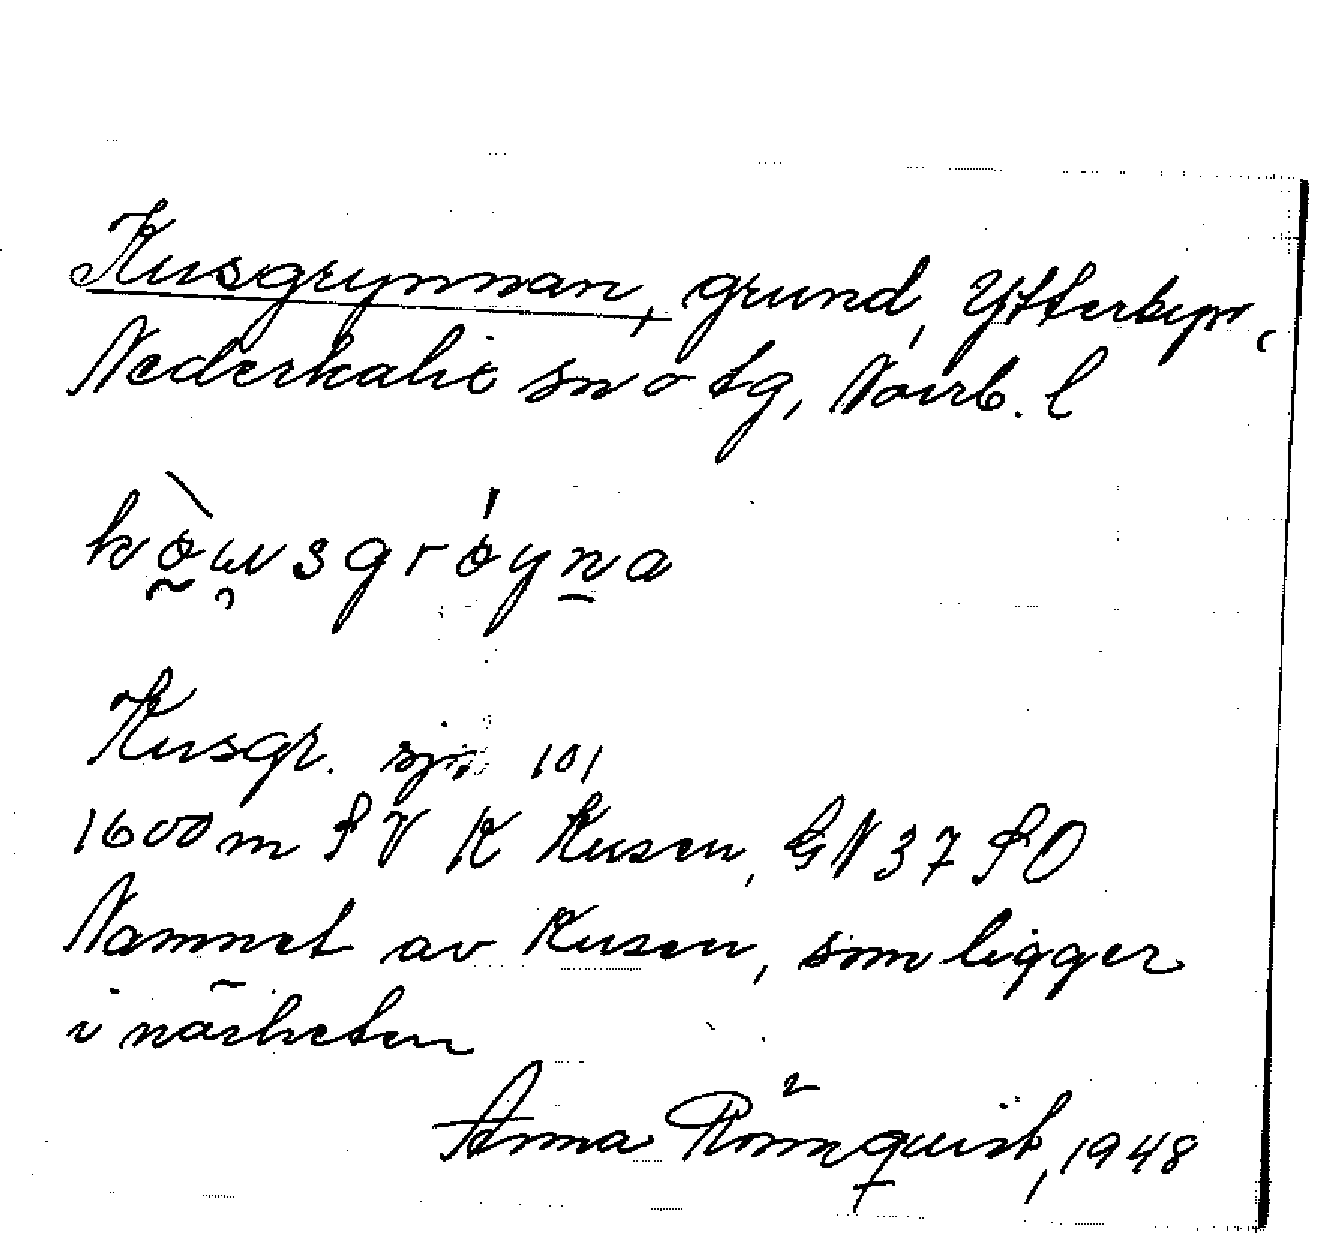 Kusgrynnan, grund, Ytterbyn,
Nederkalix sn o tg, Norrb. l
Kusgr. sjö 101
1600 m SV K Kusen, GN 37 SO
Namnet av Kusen, som ligger
i närheten
Anna Rönnquist, 1948